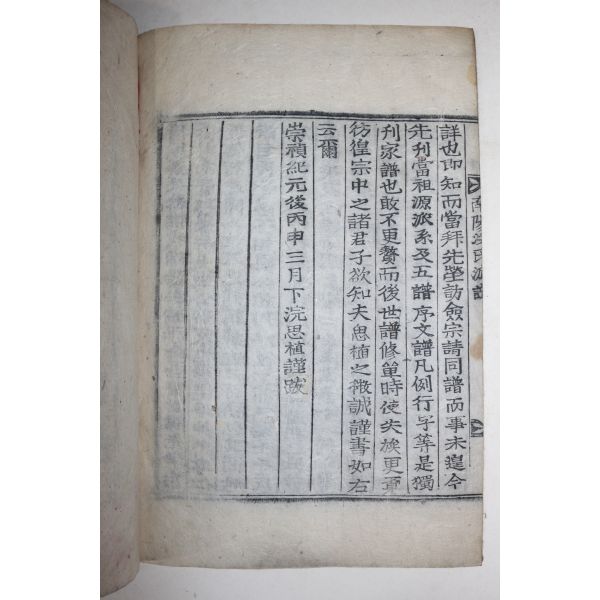 南陽洪氏派譜
詳也即知而當拜先塋訪僉宗請同譜而事未遑今
先刋當祖源派系及五譜序文譜凡例行字等是獨
刋家譜也敢不更贅而後世譜修單時使失族更
彷徨宗中之諸君子欲知夫思植之微誠謹書如右
云爾
崇禎紀元後丙申三月下浣思植謹跋